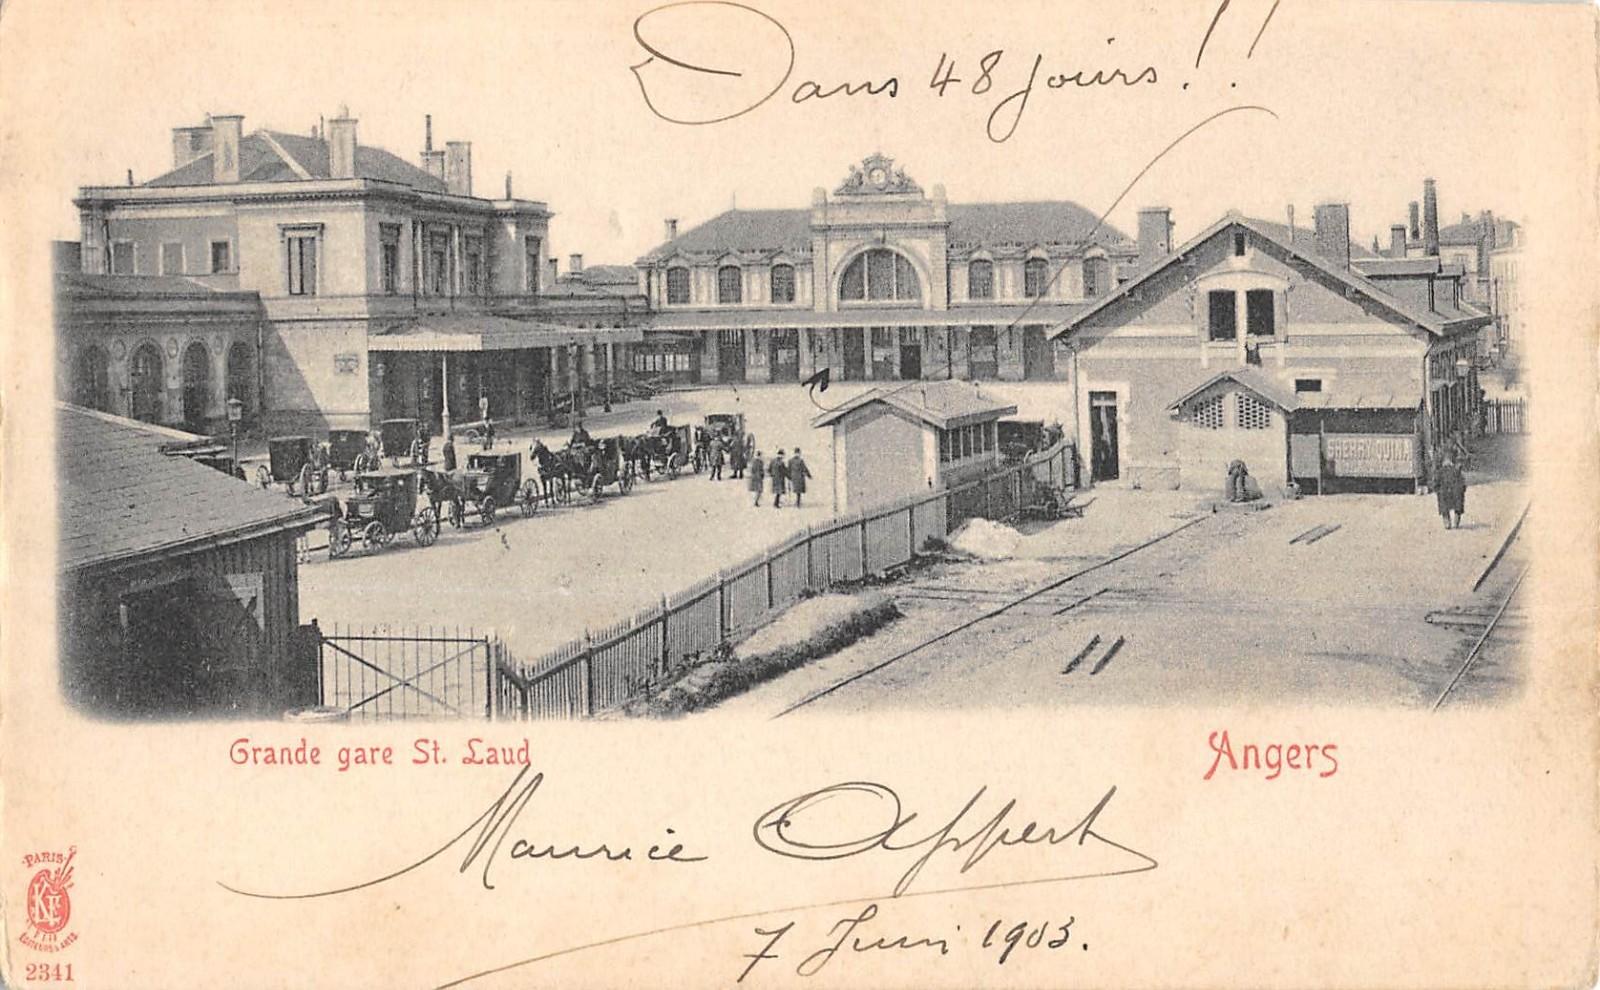 Dans 48 jours!!
SHERRY-QUINA
Grande gare St. Laud
Angers
Maurice Appert
7 Juin 1903.
PARIS
KF
EDITEURS
2341